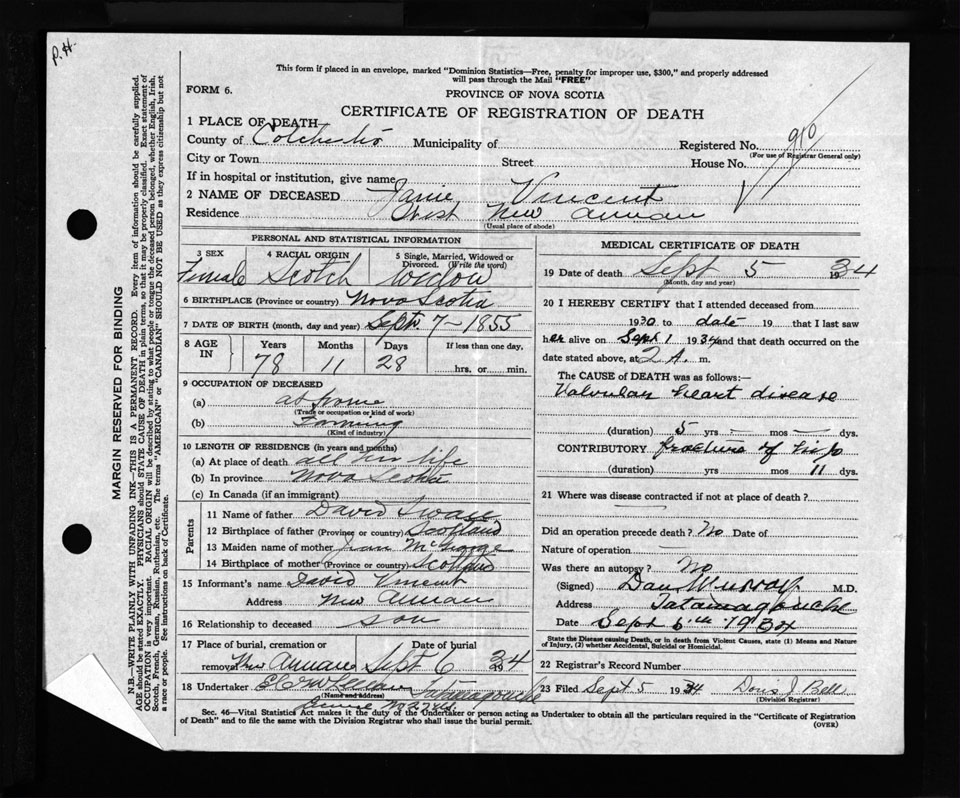 P.H.
This form if placed in an envelope, marked "Dominion Statistics—Free, penalty for improper use, $300," and properly addressed
will pass through the Mail "FREE"
FORM 6.
PROVINCE OF NOVA SCOTIA
CERTIFICATE OF REGISTRATION OF DEATH
1 PLACE OF DEATH
County of Colchester Municipality of Registered No. 910
(For use of Registrar General only)
City or Town Street House No.
If in hospital or institution, give name
2 NAME OF DECEASED Janie Vincent
Residence West New Annan
(Usual place of abode)
PERSONAL AND STATISTICAL INFORMATION
3 SEX 4 RACIAL ORIGIN 5 Single, Married, Widowed or
Divorced. (Write the word)
Female Scotch Widow
6 BIRTHPLACE (Province or country) Nova Scotia
7 DATE OF BIRTH (month, day and year) Sept. 7 - 1855
8 AGE IN Years Months Days If less than one day,
78 11 28 hrs. or min.
9 OCCUPATION OF DECEASED
(a) at home
(Trade or occupation or kind of work)
(b) Farming
(Kind of industry)
10 LENGTH OF RESIDENCE (in years and months)
(a) At place of death all her life
(b) In province Nova Scotia
(c) In Canada (if an immigrant)
Parents
11 Name of father David
12 Birthplace of father (Province or country) Scotland
13 Maiden name of mother Jean
14 Birthplace of mother (Province or country) Scotland
15 Informant's name David Vincent
Address New Annan
16 Relationship to deceased son
17 Place of burial, cremation or Date of burial
removal New Annan Sept 6 1934
18 Undertaker Tatamagouche
(Name and address)
MEDICAL CERTIFICATE OF DEATH
19 Date of death Sept 5 1934
(Month, day and year)
20 I HEREBY CERTIFY that I attended deceased from
1930 to date 19 that I last saw
her alive on Sept 1 1934 and that death occurred on the
date stated above, at 2 A. m.
The CAUSE of DEATH was as follows:—
Valvular heart disease
(duration) 5 yrs — mos — dys.
CONTRIBUTORY fracture of hip
(duration) yrs mos 11 dys.
21 Where was disease contracted if not at place of death?
Did an operation precede death? No Date of
Nature of operation —
Was there an autopsy? No
(Signed) Dan Murray M.D.
Address Tatamagouche
Date Sept 6th 1934
State the Disease causing Death, or in death from Violent Causes, state (1) Means and Nature
of Injury, (2) whether Accidental, Suicidal or Homicidal.
22 Registrar's Record Number
23 Filed Sept. 5 1934 Doris J Bell
(Division Registrar)
Sec. 46—Vital Statistics Act makes it the duty of the Undertaker or person acting as Undertaker to obtain all the particulars required in the "Certificate of Registration
of Death" and to file the same with the Division Registrar who shall issue the burial permit.
(OVER)
MARGIN RESERVED FOR BINDING
N.B.—WRITE PLAINLY WITH UNFADING INK—THIS IS A PERMANENT RECORD. Every item of information should be carefully supplied.
AGE should be stated EXACTLY. PHYSICIANS should STATE CAUSE OF DEATH in plain terms, so that it may be properly classified. Exact statement of
OCCUPATION is very important. RACIAL ORIGIN will be described by stating to what people or tongue the deceased person belonged, whether English, Irish,
Scotch, French, German, Russian, Ruthenian, etc. The terms "AMERICAN" or "CANADIAN" SHOULD NOT BE USED as they express citizenship but not
a race or people. See instructions on back of Certificate.